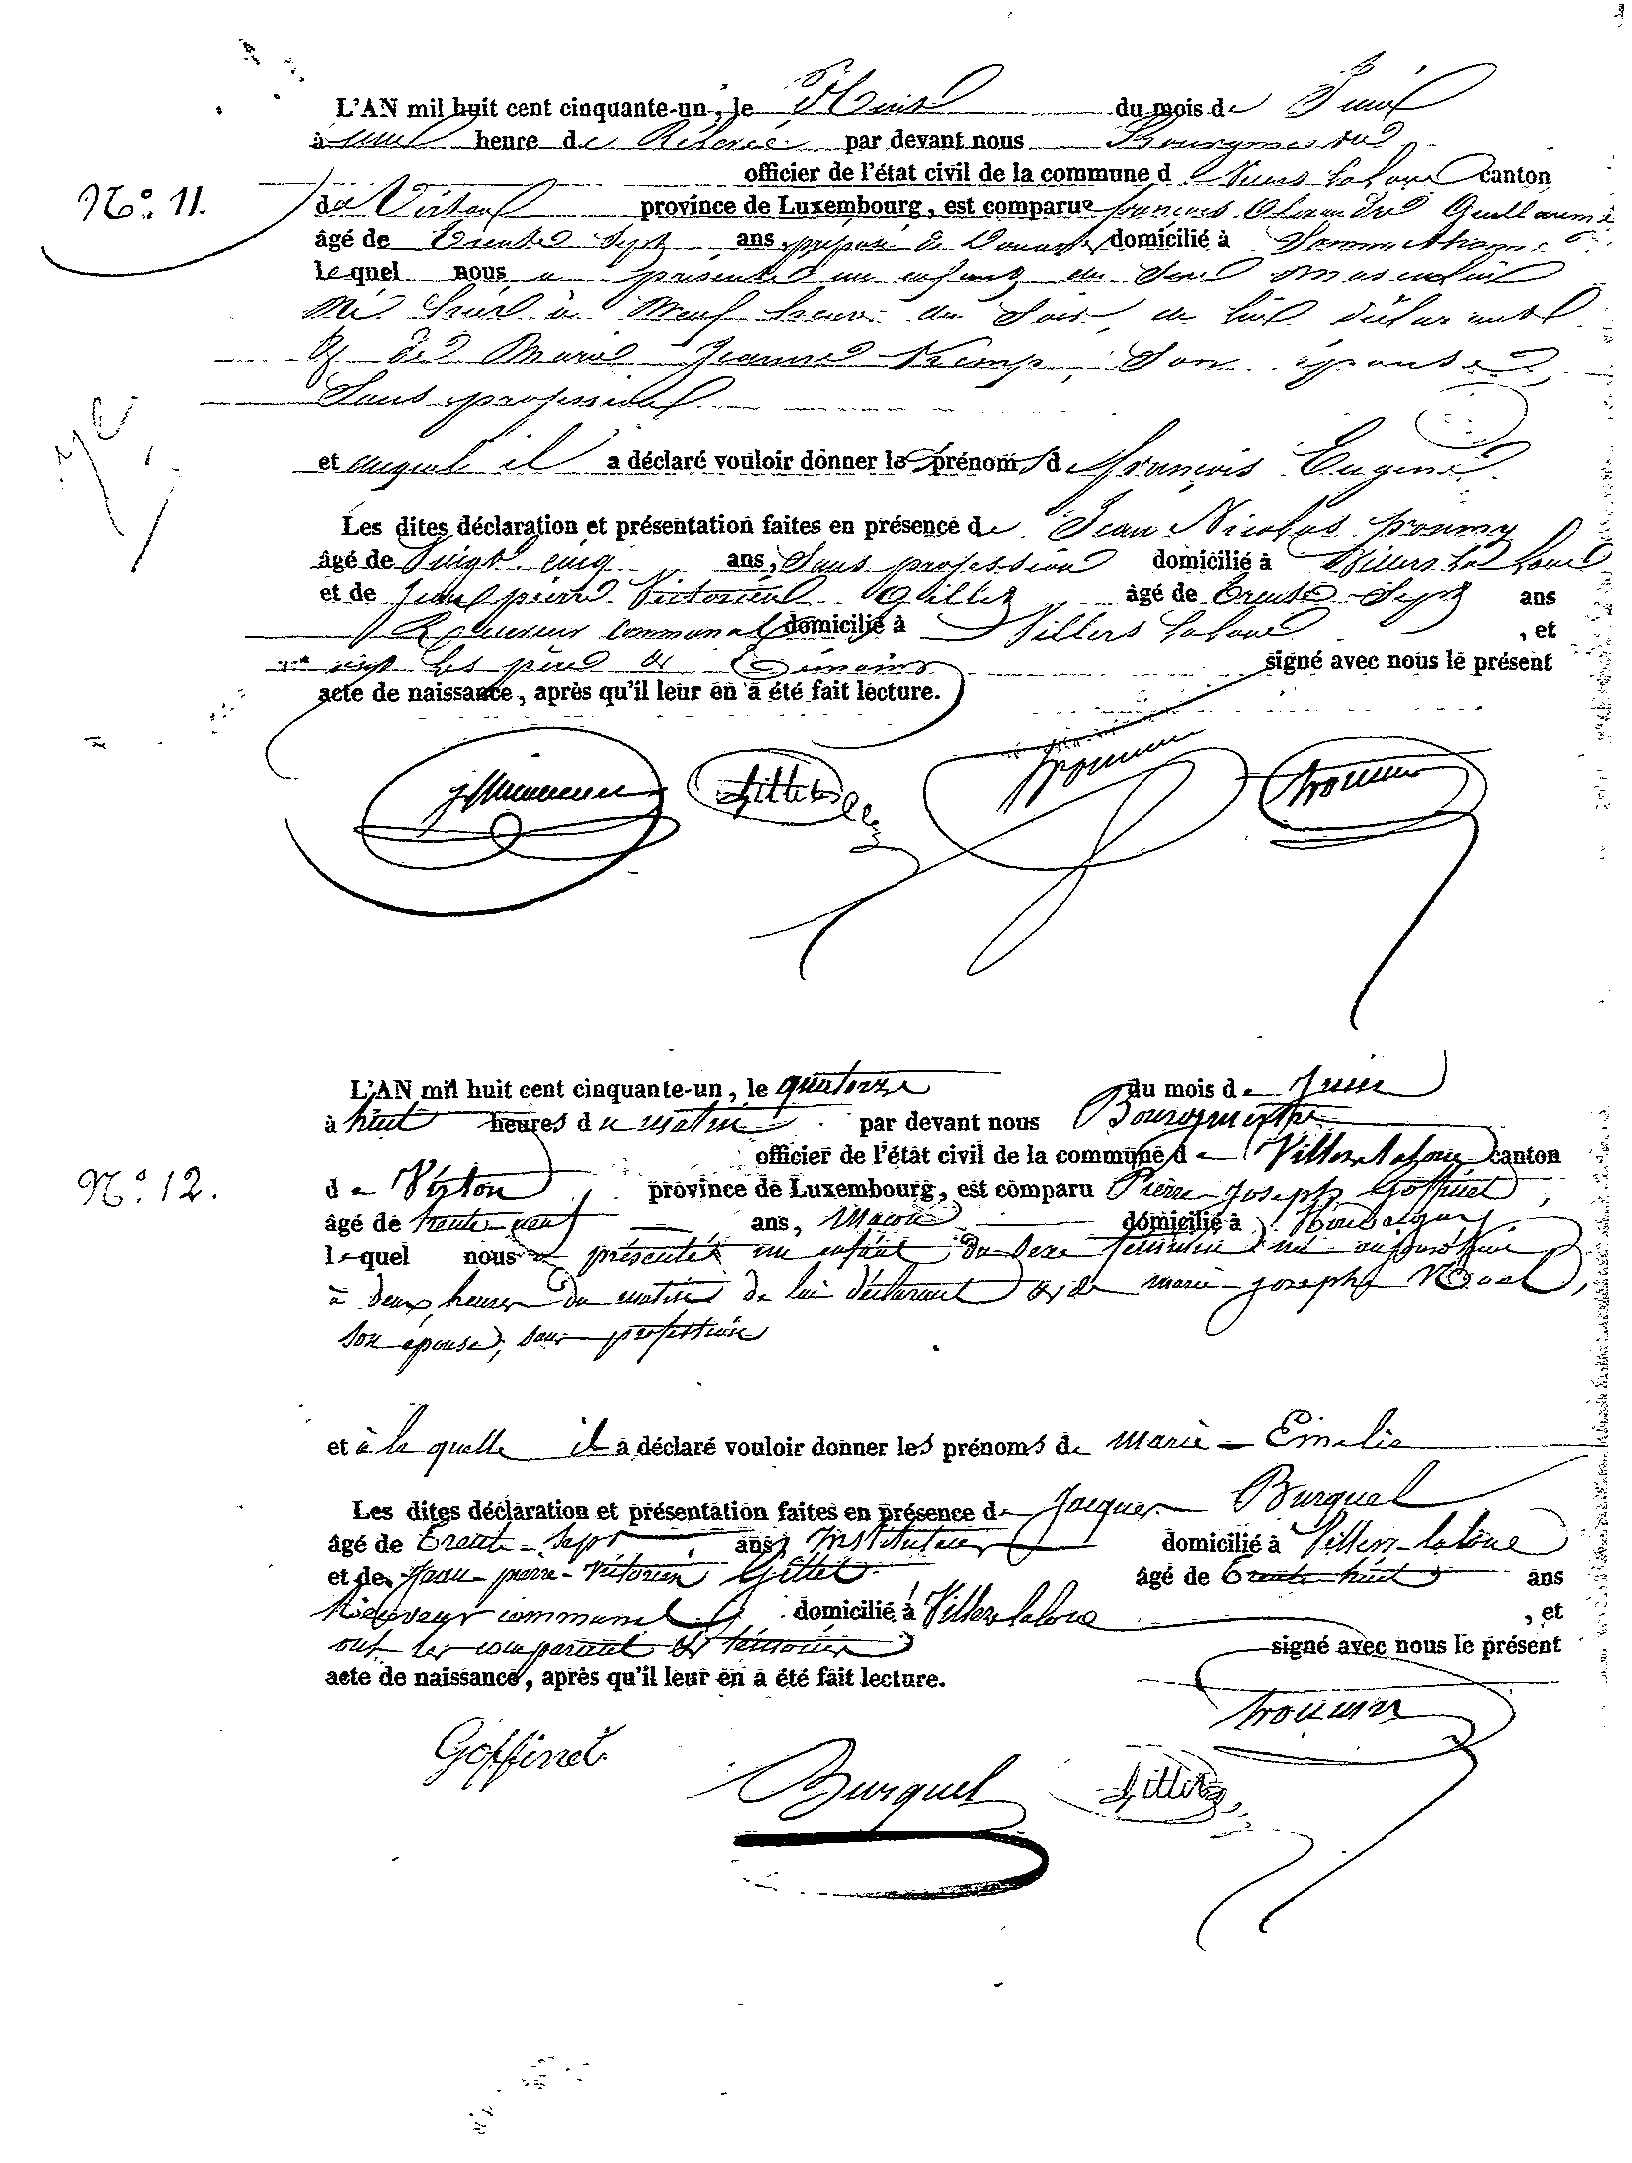 L'AN mil huit cent cinquante-un, le Huit du mois de Juin
à une heure de Rélevée par devant nous Bourgmestre
officier de l'état civil de la commune d Villers laloue canton
de Virton province de Luxembourg, est comparu françois Alexandre Guillaume
N.° 11.
âgé de trente Sept ans, préposé de Douane domicilié à Sommethonne
lequel nous a présenté un enfant du Sexe Masculin
Né hier à Neuf heures du Soir, de lui déclarant
Et de Marie Jeanne Kemp, Son épouse,
Sans profession
et auquel il a déclaré vouloir donner les prénoms de François Eugene
Les dites déclaration et présentation faites en présence de Jean Nicolas
âgé de Vingt cinq ans, Sans profession domicilié à Villers la loue
et de Jean pierre Victorien Gillet âgé de trente Sept ans
Receveur communal domicilié à Villers laloue , et
ont les père et témoins signé avec nous le présent
acte de naissance, après qu'il leur en a été fait lecture.
Gillet
L'AN mil huit cent cinquante-un, le quatorze du mois de Juin
à huit heures du matin par devant nous Bourgmestre
officier de l'état civil de la commune de Villers laloue canton
N.° 12.
de Virton province de Luxembourg, est comparu Pierre Joseph Goffinet
âgé de trente neuf ans, Macon domicilié à
lequel nous a présenté un enfant du Sexe feminin né aujourd'hui
à deux heures du matin de lui déclarant et de marie joseph Noël,
son épouse, sans profession
et à la quelle il a déclaré vouloir donner les prénoms de Marie - Emelie
Les dites déclaration et présentation faites en présence de Jacques Burquel
âgé de trente-sept ans, Instituteur domicilié à Villers-laloue
et de Jean-pierre-Victorien Gillet âgé de trente huit ans
Receveur communal domicilié à Villers laloue , et
ont les comparant et témoins signé avec nous le présent
acte de naissance, après qu'il leur en a été fait lecture.
Goffinet
Burquel
Gillet